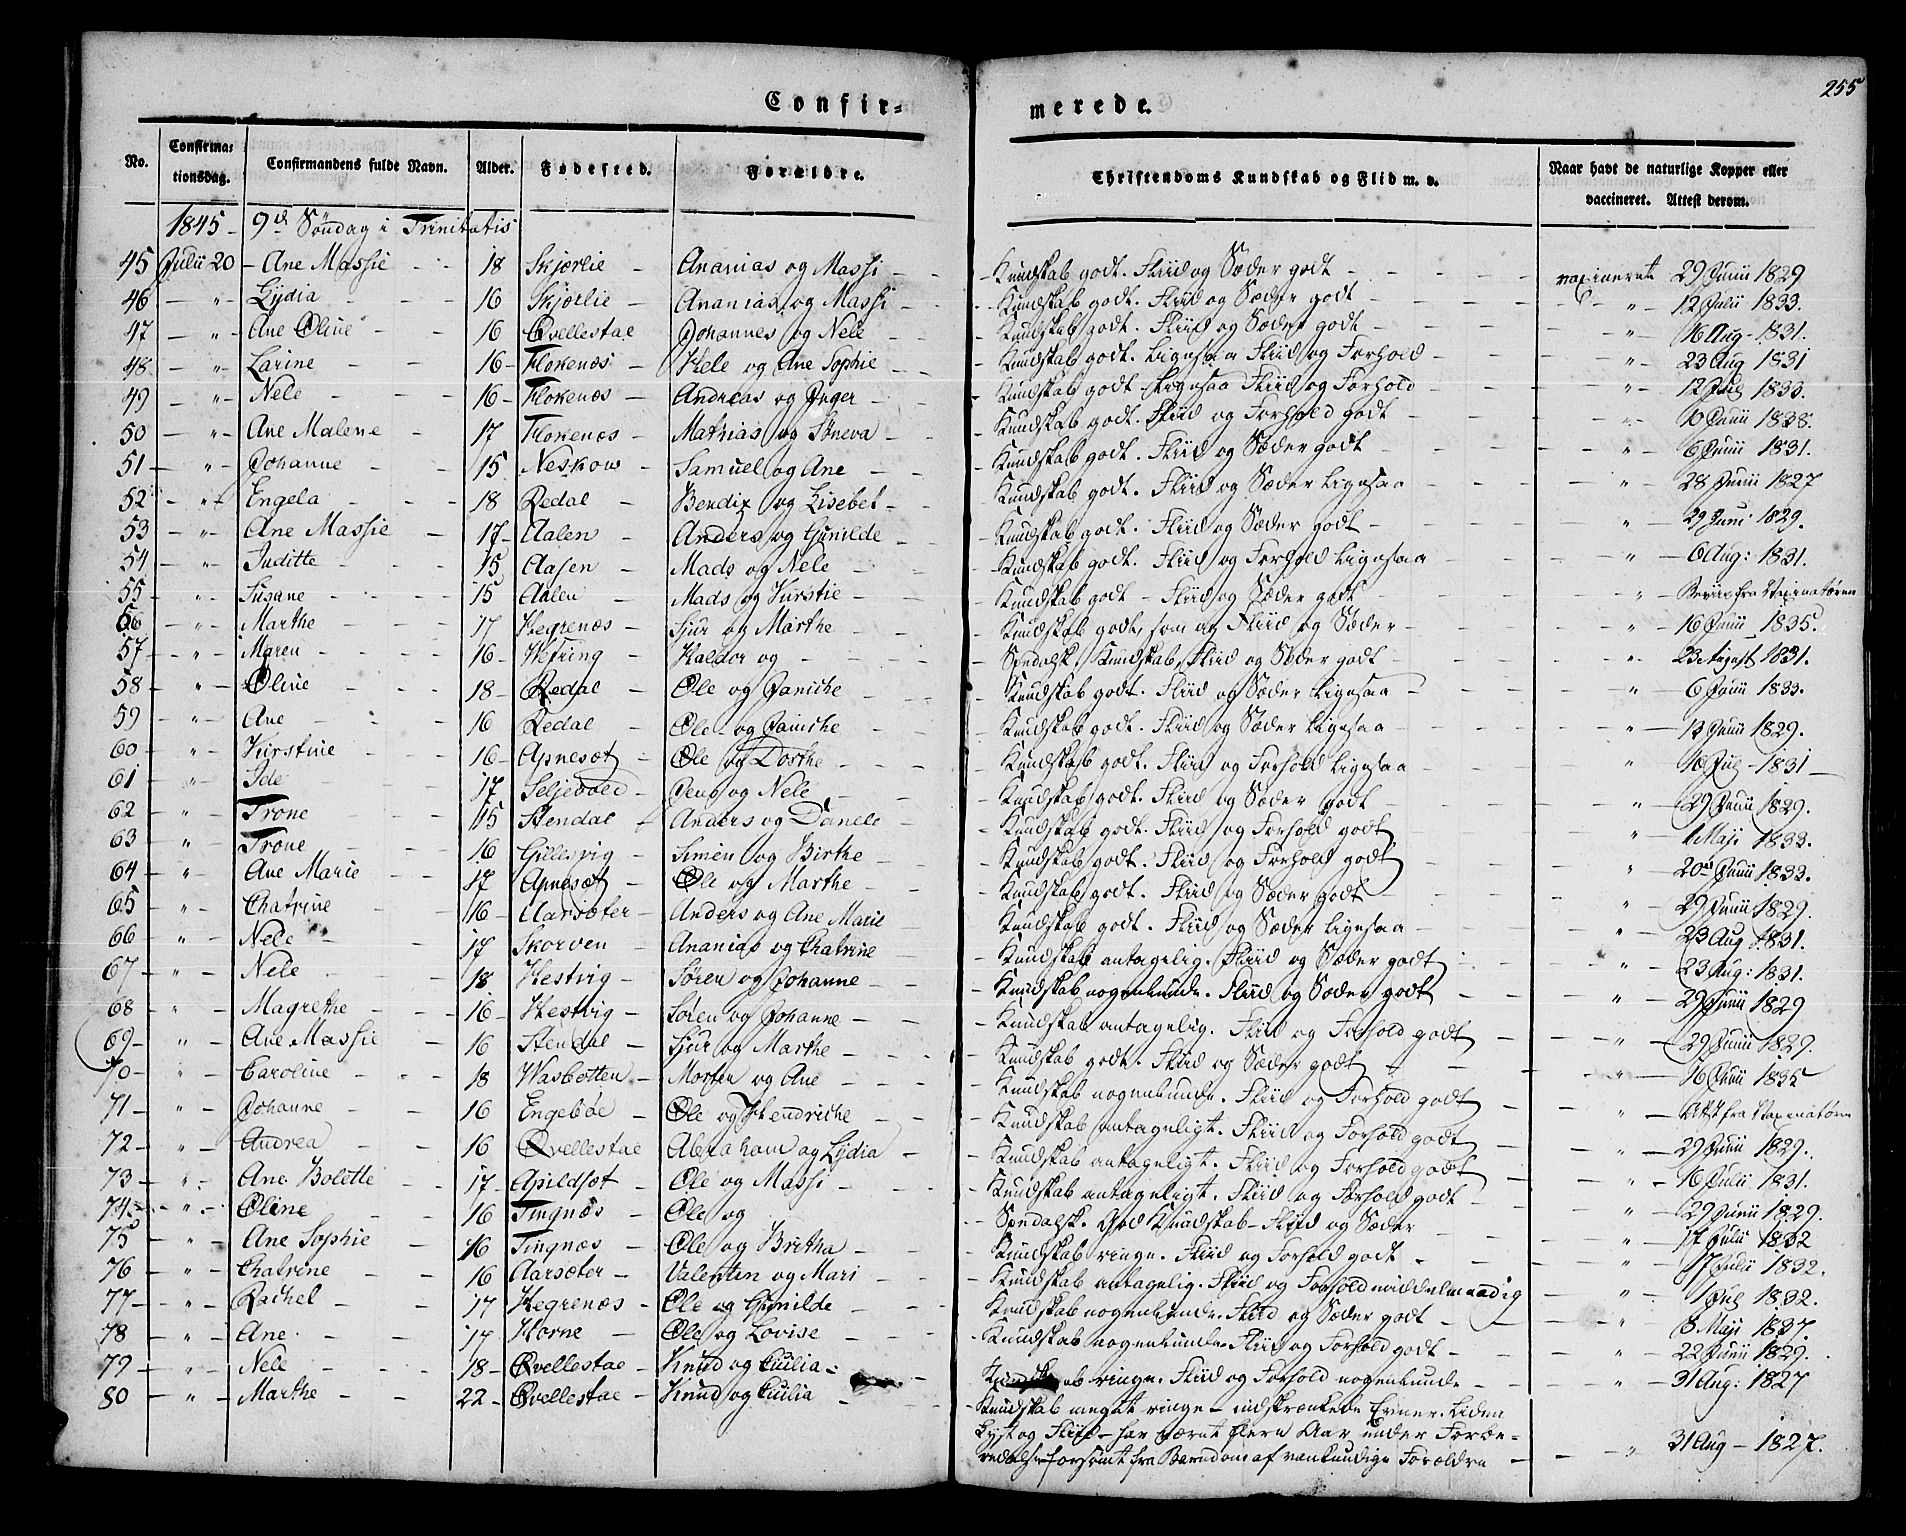 255
Confir=
merede.
No. Confirma=tionsdag. Confirmandens fulde Navn. Alder. Fødested. Forældre. Christendoms Kundskab og Flid m. v. Naar havt de naturlige Kopper eller vaccineret. Attest derom.
1845 - 9d Søndag i Trinitatis
45 Julii 20 - Ane Massie - 18 Skjørlie - Ananias og Massi - Kundskab godt. Fliid og Sæder godt - vaxinerede 29 Junii 1829
46 - " - Lydia - 16 Skjørlie - Ananias og Massi - Kundskab godt. Fliid og Sæder godt - " - 12 Julii 1833.
47 - " - Ane Oline - 16 Qvellestae Johannes og Nele - Kundskab godt. Fliid og Sæder godt - " - 16 Aug - 1831.
48 - " - Larine - 16 - Flokenæs - Hele og Ane Sophie - Kundskab godt. Ligesaa Fliid og Forhold - " - 23 Aug 1831
49 - " - Nele - 16 - Flokenæs - Andreas og Inger - Kundskab godt Ligesaa Fliid og Forhold - " - 12 Jul 1833.
50 - " - Ane Malene - 17 Flokenæs - Mathias og Søneva - Kundskab godt. Fliid og Forhold godt - " - 10 Junii 1838.
51 - " - Johanne - 15 Neskow - Samuel og Ane - Kundskab godt. Fliid og Sæder godt - " - 6 Junii 1831.
52 - " - Engela - 18 Redal - Bendix og Lisebet - Kundskab godt. Fliid og Sæder Ligesaa - " - 28 Junii 1827
53 - " - Ane Massie - 17 - Aalen - Anders og Gunilde - Kundskab godt. Fliid og Sæder godt - " - 29 Juni 1829.
54 - " - Juditte - 15 Aasen - Mads og Nele - Kundskab godt. Fliid og Forhold Ligesaa - " - 6 Aug: 1831.
55 - " - Susane - 15 Aalen - Mads og Kirstie - Kundskab godt - Fliid og Sæder godt - " - Beviis fra Vaxinatøren
56 - " - Marthe - 17 Hegrenæs - Sjur og Marthe - Kundskab godt, som og Fliid og Sæder - " - 16 Junii 1835.
57 - " - Maren - 16 - Hefring - Haldor og - Spedalsk. Kundskab, Fliid og Sæder godt - " - 23 August 1831.
58 - " - Oline - 18 - Redal - Ole og Janiche - Kundskab godt. Fliid og Sæder Ligesaa - " - 6 Junii 1833.
59 - " - Ane - 16 Redal - Ole og Janiche - Kundskab godt. Fliid og Sæder Ligesaa - " - 13 Junii 1829.
60 - " - Kirstine - 16 - Apnesæt - Ole og Dorthe - Kundskab godt. Fliid og Forhold Ligesaa - " - 16 Jul - 1831
61 - " - Sele - 17 Seljevold - Jens og Nele - Kundskab godt. Fliid og Sæder godt - " - 29 Junii 1829.
62 - " - Trone - 15 Stendal - Anders og Danele - Kundskab godt. Fliid og Forhold godt - " - 1 Maji 1833.
63 - " - Trone - 16 Gillesvig - Simen og Birthe - Kundskab godt. Fliid og Forhold godt - " - 20d Junii 1833.
64 - " - Ane Marie - 17 Apnesæt - Ole og Marthe - Kundskab godt. Fliid og Sæder godt - " - 29 Junii 1829.
65 - " - Chatrine - 16 - Aarsæter - Anders og Ane Marie - Kundskab godt. Fliid og Sæder Ligesaa - " - 23 Aug 1831.
66 - " - Nele - 17 Skorven - Ananias og Chatrine - Kundskab antagelig. Fliid og Sæder godt - " - 23 Aug: 1831.
67 - " - Nele - 18 Hestvig - Søren og Johanne - Kundskab nogenlunde. Fliid og Sæder godt - " - 29 Junii 1829
68 - " - Magrethe - 16 - Hestvig - Søren og Johanne - Kundskab antagelig. Fliid og Forhold godt - " - 29 Junii 1829.
69 - " - Ane Massie - 16 Stendal - Sjur og Marthe - Kundskab godt. Fliid og Sæder godt - " - 16 Junii 1835
70 - " - Caroline - 18 Wasbotten - Morten og Ane - Kundskab nogenlunde. Fliid og Forhold godt - " - Attst fra Vaxinatøren
71 - " - Johanne - 16 Engebøe - Ole og Hendriche - Kundskab antageligt. Fliid og Forhold godt - " - 29 Junii 1829.
72 - " - Andrea - 16 Qvellestae Abraham og Lydia - Kundskab antageligt. Fliid og Forhold godt - " - 16 Julii 1831.
73 - " - Ane Bolette - 17 - Apildsæt - Ole og Massi - Kundskab antageligt. Fliid og Forhold godt - " - 29 Junii 1829.
74 - " - Oline - 16 Tingnæs - Ole og - Spedalsk. God Kundskab - Fliid og Sæder - " - 17 Julii 1832
75 - " - Ane Sophie - 16 Tingnæs - Ole og Britha - Kundskab ringe. Fliid og Forhold godt - " - 17 Julii 1832.
76 - " - Chatrine - 16 Aarsæter - Valentin og Mari - Kundskab antagelig. Fliid og Forhold middelmaadig - " - 1 Jul 1832.
77 - " - Rachel - 17 Hegrenæs - Ole og Gunilde - Kundskab nogenlunde. Fliid og Sæder godt - " - 8 Maji 1837.
78 - " - Ane - 17 Horne - Ole og Lovise - Kundskab nogenlunde. Fliid og Forhold godt - " - 22 Junii 1829.
79 - " - Nele - 18 - Qvellestae - Knud og Cicilia - Kundskab ringe. Fliid og Forhold nogenlunde - " - 31 Aug: 1827
80 - " - Marthe - 22 - Qvellestae - Knud og Cicilia - Kundskab meget ringe - indskrænkede Evner. Liden
Lyst og Fliid - har været flere Aar under Forbe-
redelse forsømt fra Barndom af vankundige Forældre - " - 31 Aug - 1827.